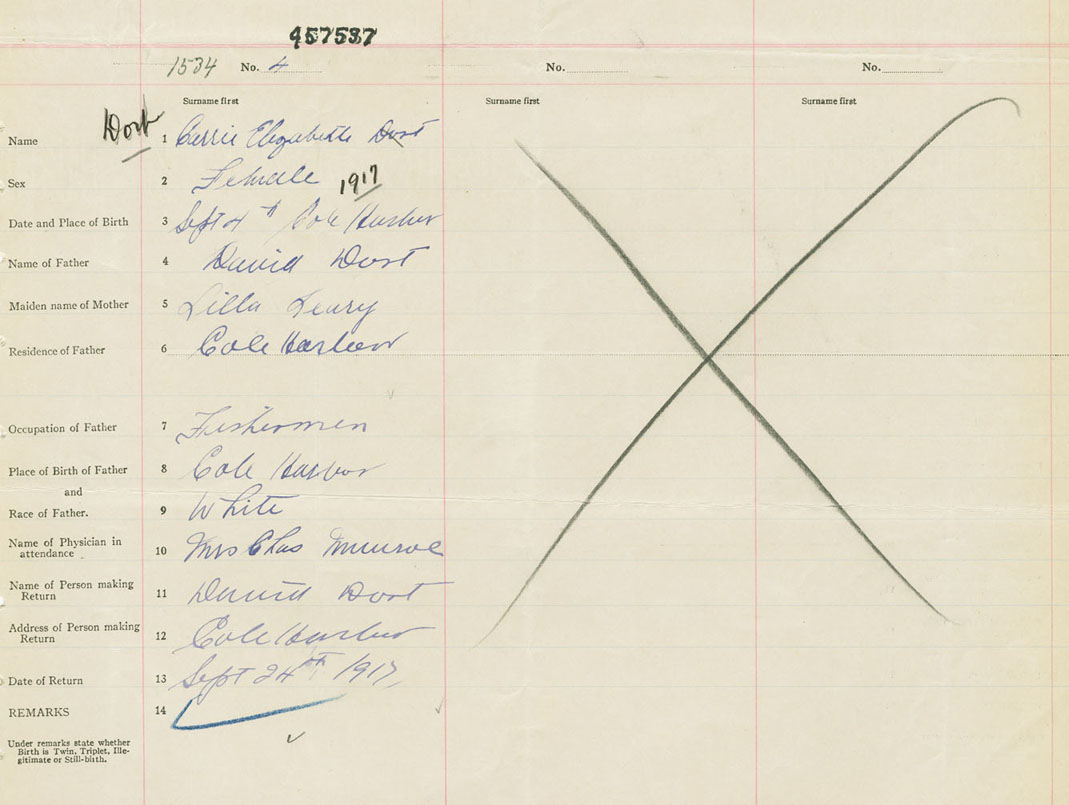 457537
1534 No. 4 No. No.
Surname first Surname first Surname first
Dort
Name 1 Carrie Elizabeth Dort
Sex 2 Female 1917
Date and Place of Birth 3 Sept 4th Cole Harbor
Name of Father 4 David Dort
Maiden name of Mother 5 Lilla
Residence of Father 6 Cole Harbour
Occupation of Father 7 Fishermen
Place of Birth of Father 8 Cole Harbor
and
Race of Father. 9 White
Name of Physician in
attendance 10 Mrs Chas Munroe
Name of Person making
Return 11 David Dort
Address of Person making
Return 12 Cole Harbor
Date of Return 13 Sept 24th 1917
REMARKS 14
Under remarks state whether
Birth is Twin, Triplet, Ille-
gitimate or Still-bith.